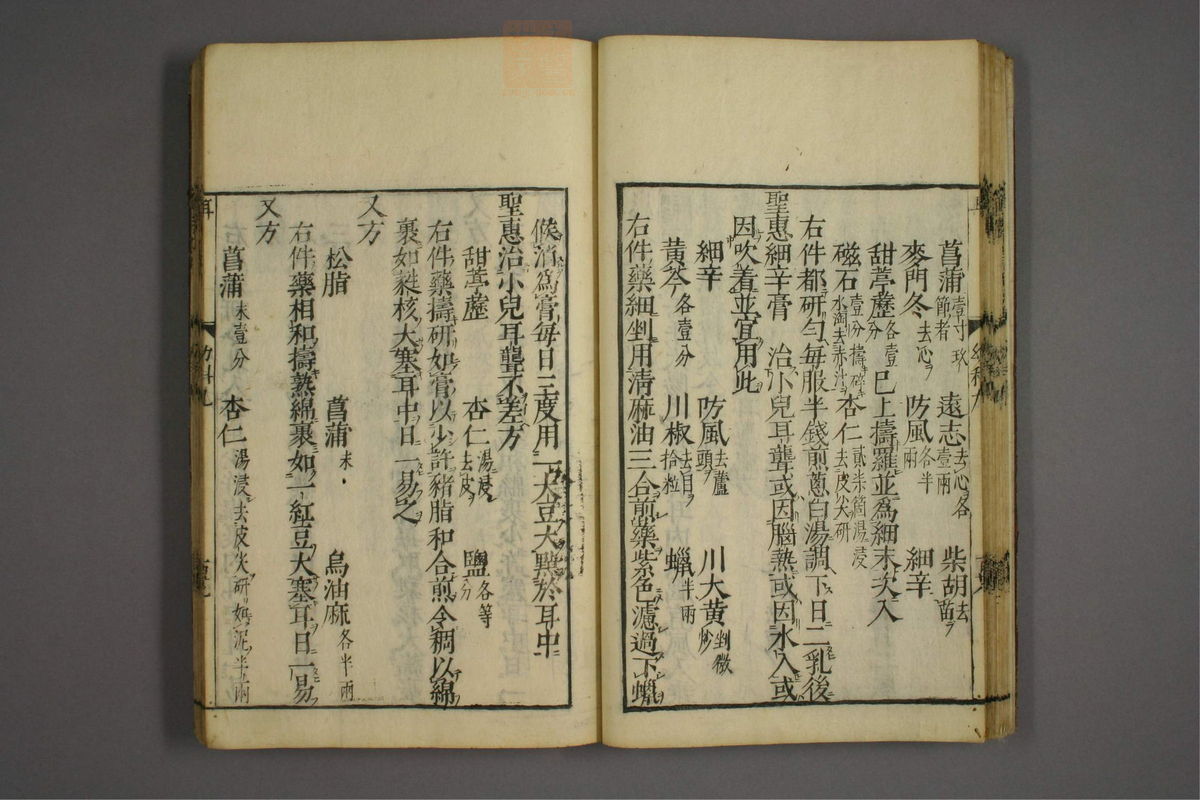 菖蒲壹寸玖節者　遠志去心各壹兩　柴胡去苗
麥門冬去心　防風各半兩　細辛
甜葶藶各壹分　已上擣羅並爲細末次入
磁石壹分擣碎水淘去赤汁　杏仁貳柒箇湯浸去皮尖研
右件都研勻每服半錢煎蔥白湯調下日二乳後
聖惠細辛膏　治小兒耳聾或因腦熱或因水入或
因吹着並宜用此
細辛　防風去蘆頭　川大黃剉微炒
黃芩各壹分　川椒去目拾粒　蠟半兩
右件藥細剉用清麻油三合煎藥紫色濾過下蠟
候消爲膏每日三度用一大豆大點於耳中
聖惠治小兒耳聾不差方
甜葶藶　杏仁湯浸去皮　鹽各等分
右件藥擣研如膏以少許豬脂和合煎令稠以綿
裹如蕤核大塞耳中日一易之
又方
松脂　菖蒲末　烏油麻各半兩
右件藥相和擣熟綿裹如一紅豆大塞耳日一易
又方
菖蒲末壹分　杏仁湯浸去皮尖研如泥半兩
耳
幼科九